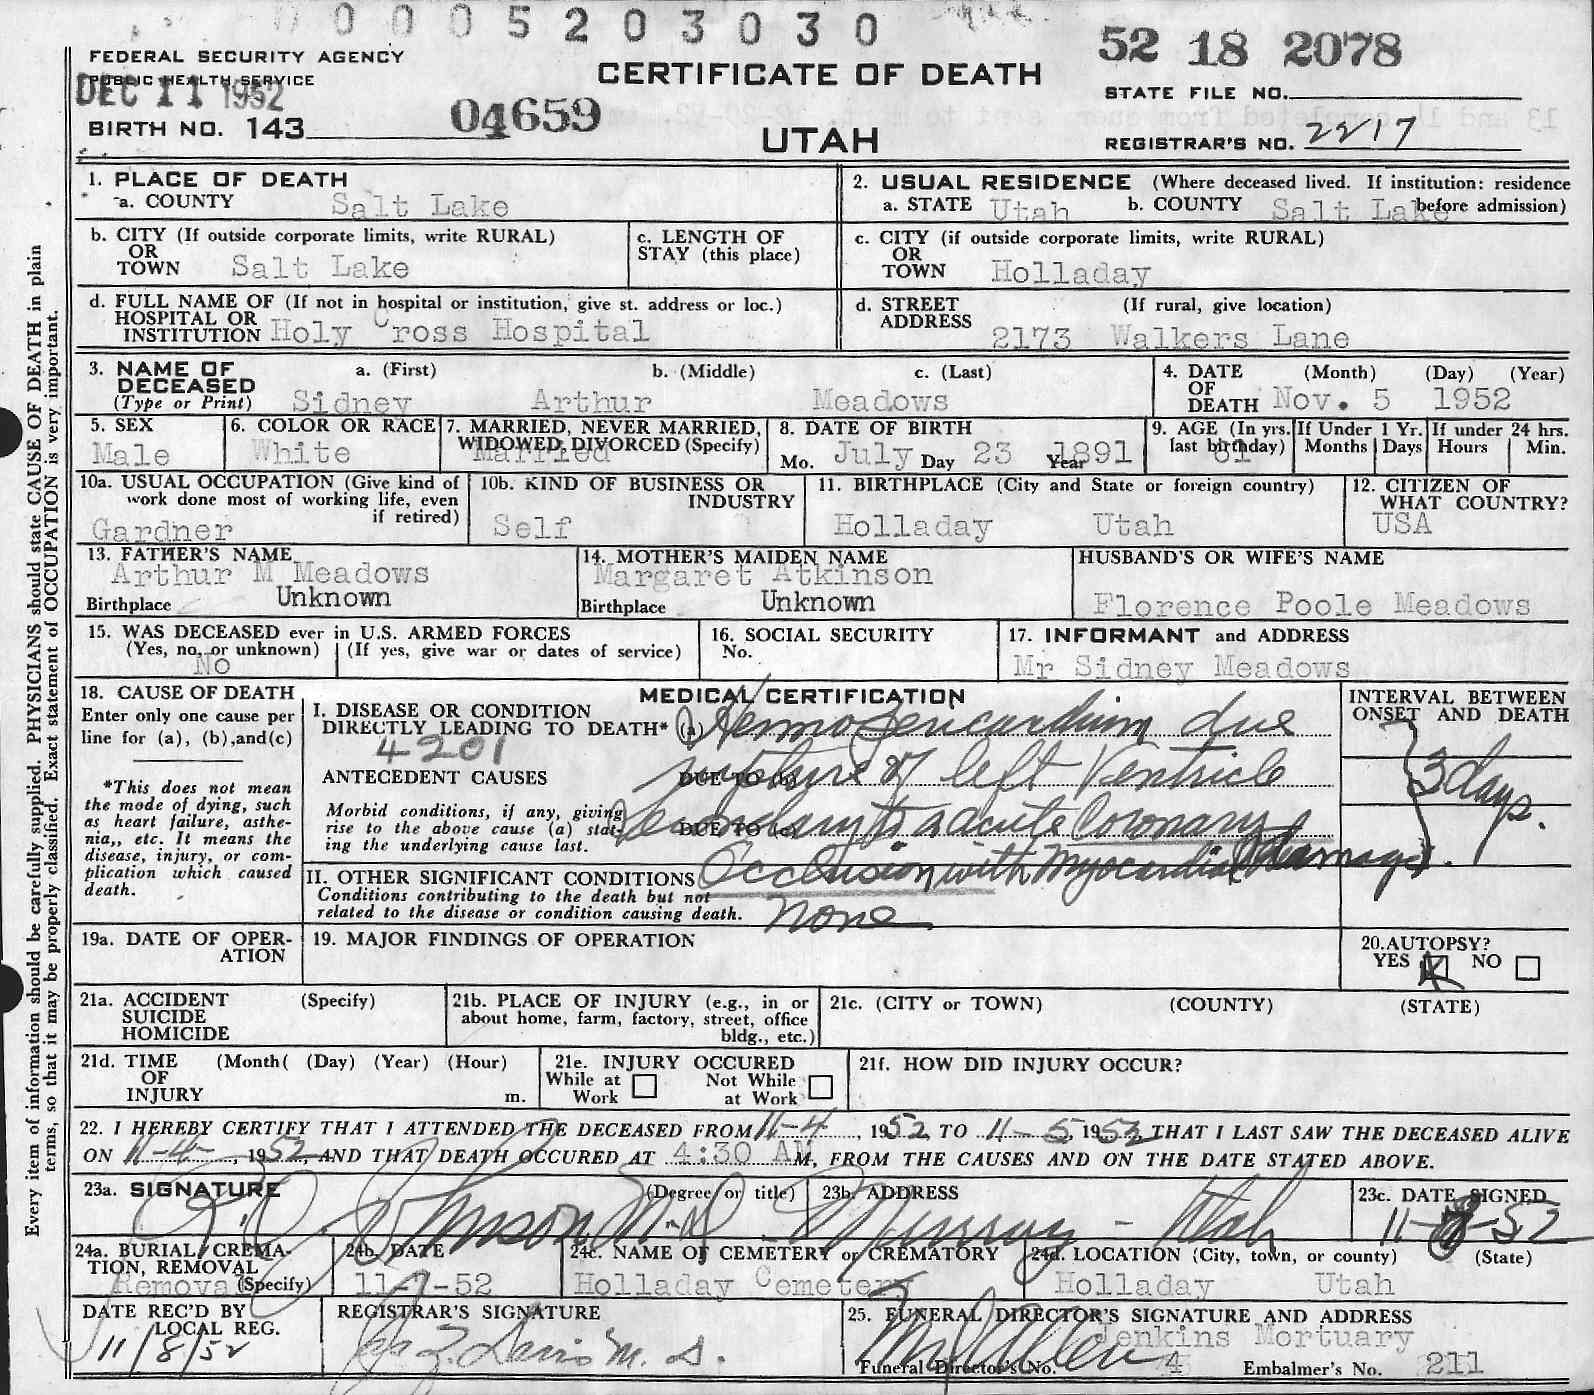 0005203030
FEDERAL SECURITY AGENCY
PUBLIC HEALTH SERVICE
DEC 11 1952
BIRTH NO. 143
04659
CERTIFICATE OF DEATH
UTAH
52 18 2078
STATE FILE NO.
REGISTRAR'S NO. 2217
1. PLACE OF DEATH
a. COUNTY Salt Lake
2. USUAL RESIDENCE (Where deceased lived. If institution: residence before admission)
a. STATE Utah b. COUNTY Salt Lake
b. CITY (If outside corporate limits, write RURAL)
OR
TOWN Salt Lake
c. LENGTH OF
STAY (this place)
c. CITY (if outside corporate limits, write RURAL)
OR
TOWN Holladay
d. FULL NAME OF (If not in hospital or institution, give st. address or loc.)
HOSPITAL OR
INSTITUTION Holy Cross Hospital
d. STREET (If rural, give location)
ADDRESS 2173 Walkers Lane
3. NAME OF DECEASED a. (First) b. (Middle) c. (Last)
(Type or Print) Sidney Arthur Meadows
4. DATE (Month) (Day) (Year)
OF
DEATH Nov. 5 1952
5. SEX
Male
6. COLOR OR RACE
White
7. MARRIED, NEVER MARRIED,
WIDOWED, DIVORCED (Specify)
Married
8. DATE OF BIRTH
Mo. July Day 23 Year 1891
9. AGE (In yrs. last birthday) 61
If Under 1 Yr. Months Days
If under 24 hrs. Hours Min.
10a. USUAL OCCUPATION (Give kind of
work done most of working life, even
if retired)
Gardner
10b. KIND OF BUSINESS OR
INDUSTRY
Self
11. BIRTHPLACE (City and State or foreign country)
Holladay Utah
12. CITIZEN OF
WHAT COUNTRY?
USA
13. FATHER'S NAME
Arthur M Meadows
Birthplace Unknown
14. MOTHER'S MAIDEN NAME
Margaret Atkinson
Birthplace Unknown
HUSBAND'S OR WIFE'S NAME
Florence Poole Meadows
15. WAS DECEASED ever in U.S. ARMED FORCES
(Yes, no, or unknown) (If yes, give war or dates of service)
No
16. SOCIAL SECURITY
No.
17. INFORMANT and ADDRESS
Mr Sidney Meadows
18. CAUSE OF DEATH
Enter only one cause per
line for (a), (b),and(c)
*This does not mean
the mode of dying, such
as heart failure, asthe-
nia,, etc. It means the
disease, injury, or com-
plication which caused
death.
MEDICAL CERTIFICATION
I. DISEASE OR CONDITION
DIRECTLY LEADING TO DEATH* (a) Hemopericardium due
4201
ANTECEDENT CAUSES DUE TO (b) rupture of left Ventricle
Morbid conditions, if any, giving
rise to the above cause (a) stat-
ing the underlying cause last.
DUE TO (c) Secondary to acute Coronary
Occlusion with Myocardial damage.
II. OTHER SIGNIFICANT CONDITIONS
Conditions contributing to the death but not
related to the disease or condition causing death.
none
INTERVAL BETWEEN
ONSET AND DEATH
3 days.
19a. DATE OF OPER-
ATION
19. MAJOR FINDINGS OF OPERATION
20.AUTOPSY?
YES X NO
21a. ACCIDENT (Specify)
SUICIDE
HOMICIDE
21b. PLACE OF INJURY (e.g., in or
about home, farm, factory, street, office
bldg., etc.)
21c. (CITY or TOWN) (COUNTY) (STATE)
21d. TIME (Month( (Day) (Year) (Hour)
OF
INJURY m.
21e. INJURY OCCURED
While at Work Not While at Work
21f. HOW DID INJURY OCCUR?
22. I HEREBY CERTIFY THAT I ATTENDED THE DECEASED FROM 11-4, 1952, TO 11-5, 1952, THAT I LAST SAW THE DECEASED ALIVE
ON 11-4-, 1952, AND THAT DEATH OCCURED AT 4:30 AM, FROM THE CAUSES AND ON THE DATE STATED ABOVE.
23a. SIGNATURE (Degree or title)
Johnson M.D.
23b. ADDRESS
Murray - Utah
23c. DATE SIGNED
11-8-52
24a. BURIAL, CREMA-
TION, REMOVAL
(Specify)
Removal
24b. DATE
11-7-52
24c. NAME OF CEMETERY or CREMATORY
Holladay Cemetery
24d. LOCATION (City, town, or county) (State)
Holladay Utah
DATE REC'D BY
LOCAL REG.
11/8/52
REGISTRAR'S SIGNATURE
Davis M. D.
25. FUNERAL DIRECTOR'S SIGNATURE AND ADDRESS
Jenkins Mortuary
Funeral Director's No. 4 Embalmer's No. 211
Every item of information should be carefully supplied. PHYSICIANS should state CAUSE OF DEATH in plain
terms, so that it may be properly classified. Exact statement of OCCUPATION is very important.